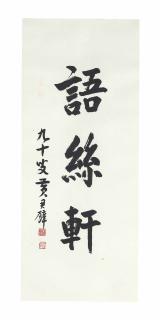 語絲軒
九十叟黃君璧